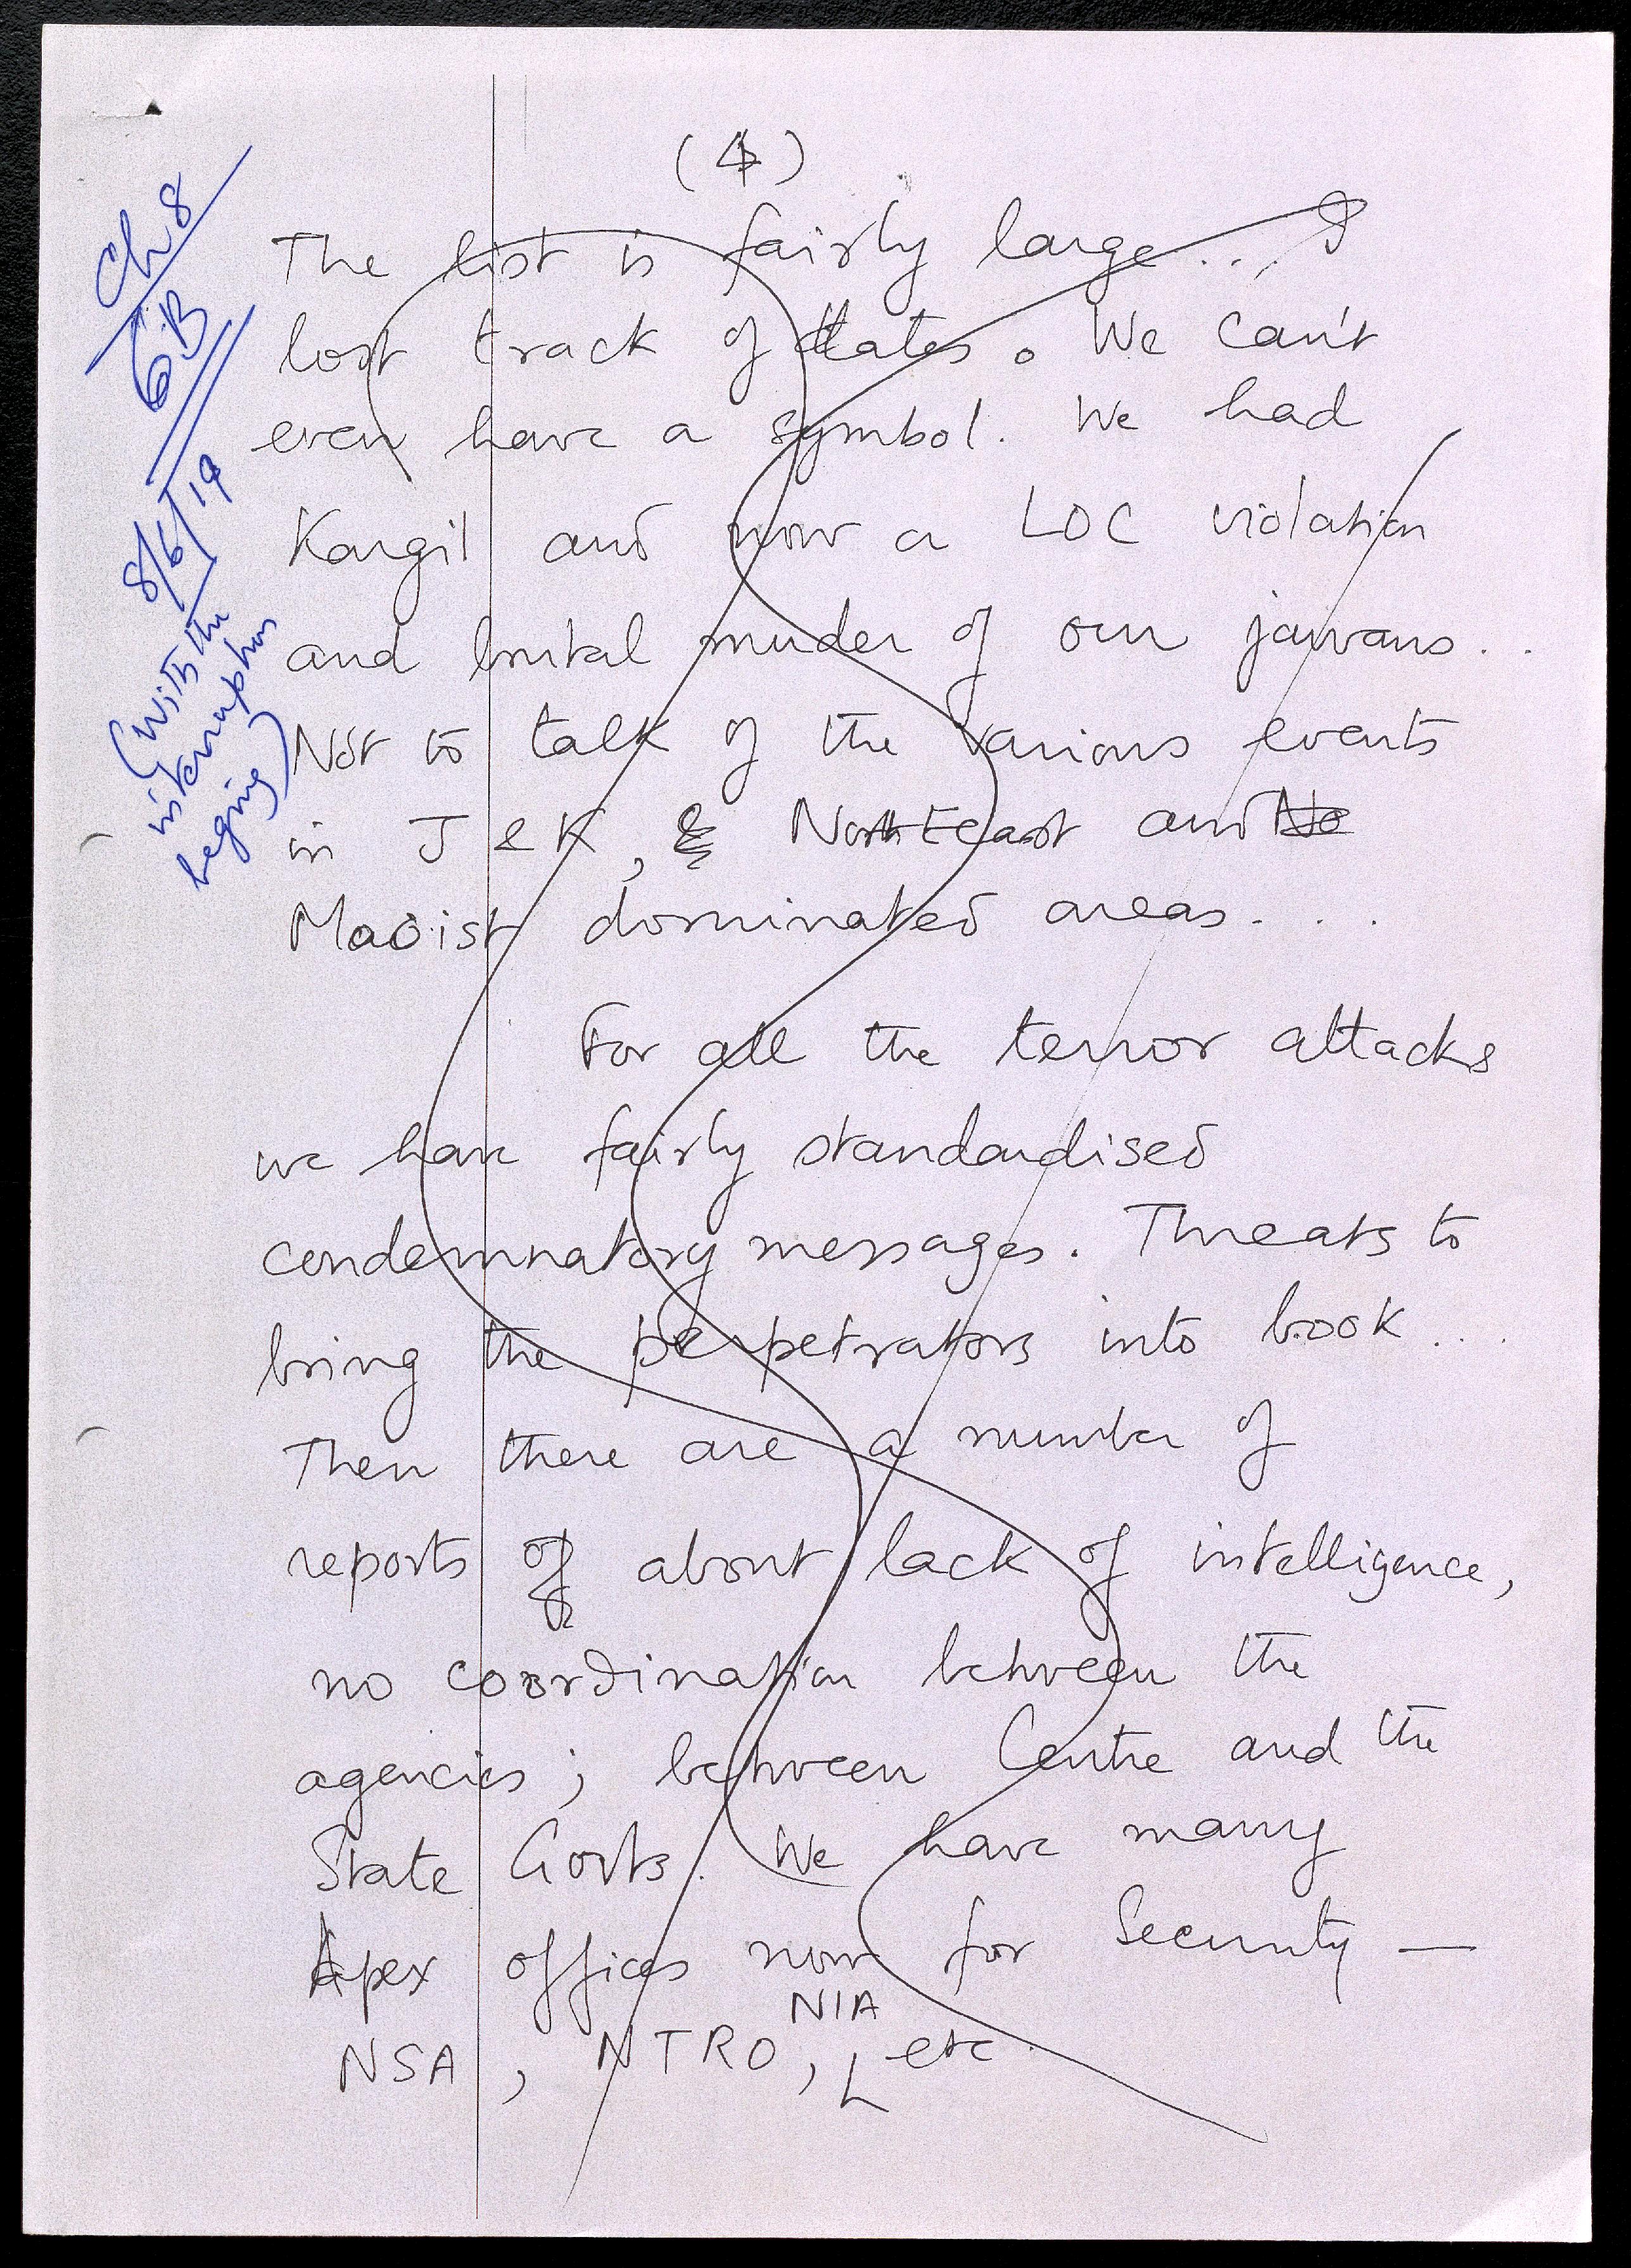 (4)
The list is fairly large... I
lost track of dates. We can't
even have a symbol. We had
Kargil and now a LOC violation
and brutal muder of our jawans..
Not to talk of the various events
in J & K, & North East and No
Maoist dominated areas...
For all the terror attacks
we have fairly standardised
condemnatory messages. Threats to
bring the perpetrators into book...
Then there are a number of
reports of about lack of intelligence,
no coordination between the
agencies; between Centre and the
State Govts. We have many
Apex offices now for Security —
NIA
NSA, NTRO, etc.
Ch 8
6B
8/6/19
(with the
interruptions
beging)